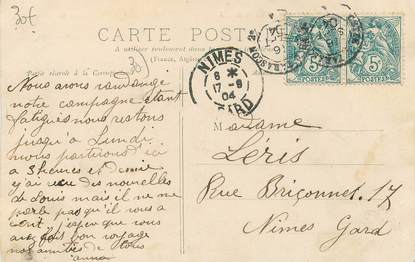 30f
CARTE POSTALE
A utiliser seulement dans
(France, Algérie
Partie réservée à la Correspondance
30
NIMES
6 *
17-9
04
GARD
POSTES
5c
POSTES
5c
Nous avons
notre campagne étant
fatigués nous restons
jusqu'à Lundi
nous partirons ici
à 3 heures et demie
j'ai recu des nouvelles
de Louis mais il ne me
parle pas qu'il vous a
écrit j'espère que vous
avez fait bon voyage
nos amitiés de tous
anna
Madame
Léris
Rue Briçonnet. 17
Nimes Gard